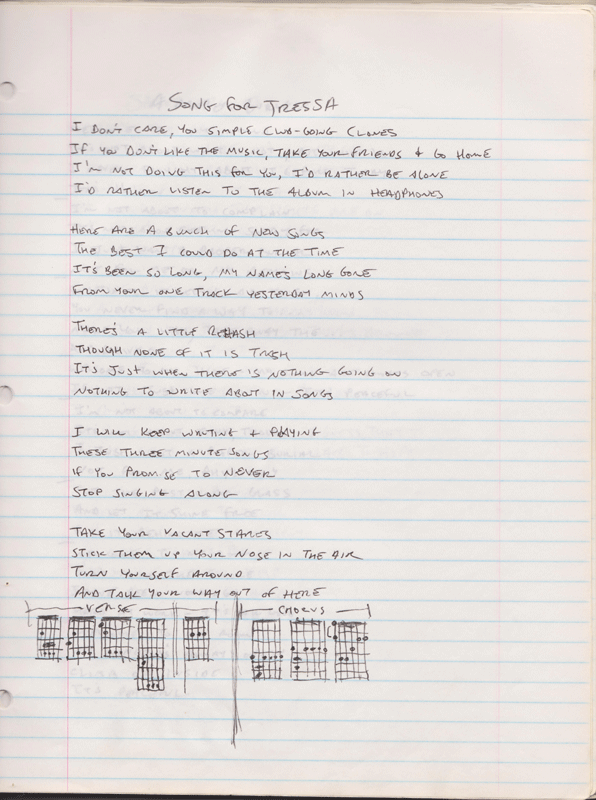 SONG FOR TRESSA
I DON'T CARE, YOU SIMPLE CLUB-GOING CLONES
IF YOU DON'T LIKE THE MUSIC, TAKE YOUR FRIENDS & GO HOME
I'M NOT DOING THIS FOR YOU, I'D RATHER BE ALONE
I'D RATHER LISTEN TO THE ALBUM IN HEADPHONES
HERE ARE A BUNCH OF NEW SONGS
THE BEST I COULD DO AT THE TIME
IT'S BEEN SO LONG, MY NAME'S LONG GONE
FROM YOUR ONE TRACK YESTERDAY MINDS
THERE'S A LITTLE REHASH
THOUGH NONE OF IT IS TRASH
IT'S JUST WHEN THERE IS NOTHING GOING ON
NOTHING TO WRITE ABOUT IN SONGS
I WILL KEEP WRITING & PLAYING
THESE THREE MINUTE SONGS
IF YOU PROMISE TO NEVER
STOP SINGING ALONG
TAKE YOUR VACANT STARES
STICK THEM UP YOUR NOSE IN THE AIR
TURN YOURSELF AROUND
AND TALK YOUR WAY OUT OF HERE
VERSE CHORUS